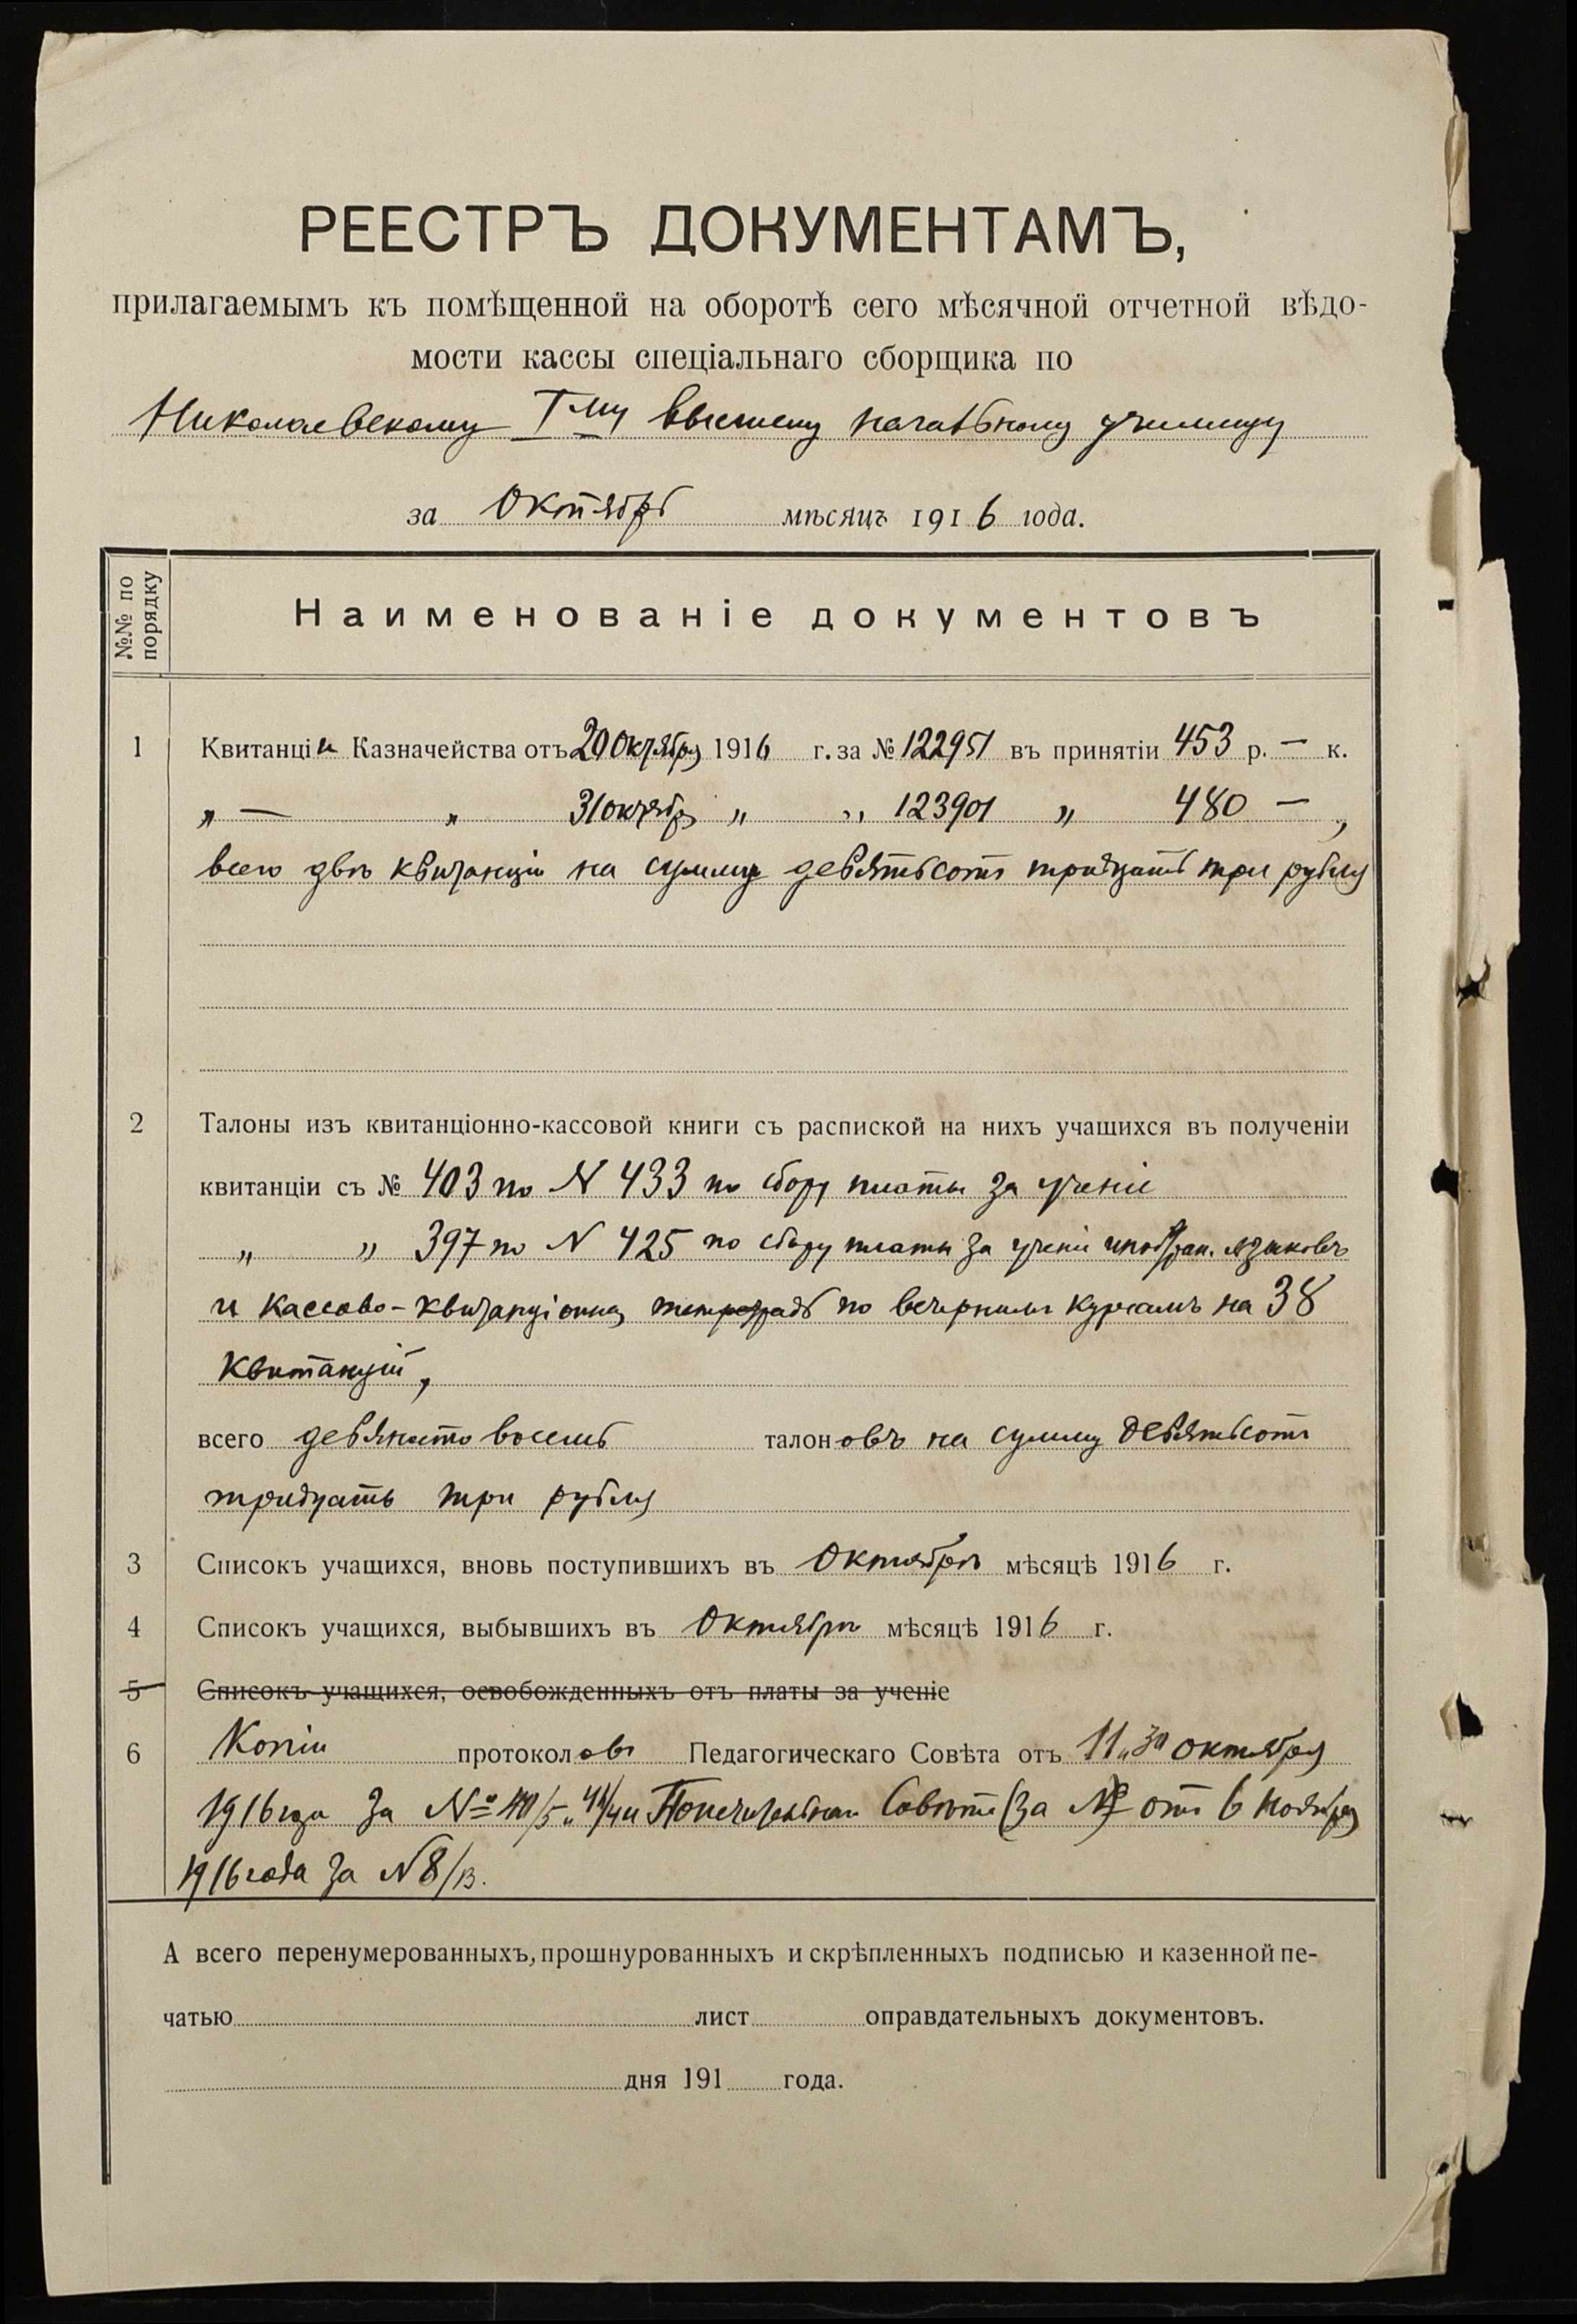 РЕЕСТРЪ ДОКУМЕНТАМЪ,
прилагаемымъ къ помѣщенной на оборотѣ сего мѣсячной отчетной вѣдо-
мости кассы спеціальнаго сборщика по
Николаевскому I му высшему начальному училищу
за Октябрь мѣсяцъ 1916 года.
№№ по порядку
Наименованіе документовъ
1 Квитанціи Казначейства отъ 20 октября 1916 г. за № 122951 въ принятіи 453 р. — к.
„ — „ 31 октября „ „ 123901 „ 480 — ,
всего двѣ квитанціи на сумму девятьсотъ тридцать три рубля
2 Талоны изъ квитанціонно-кассовой книги съ распиской на нихъ учащихся въ полученіи
квитанціи съ № 403 по N 433 по сбору платы за ученіе
„ „ 397 по N 425 по сбору платы за ученіе иностран. языковъ
и кассово-квитанціонная тетрадь по вечернимъ курсамъ на 38
квитанцій,
всего девяносто восемь талоновъ на сумму девятьсотъ
тридцать три рубля
3 Списокъ учащихся, вновь поступившихъ въ Октябрѣ мѣсяцѣ 1916 г.
4 Списокъ учащихся, выбывшихъ въ Октябрѣ мѣсяцѣ 1916 г.
5 Списокъ учащихся, освобожденныхъ отъ платы за ученіе
6 Копіи протоколовъ Педагогическаго Совѣта отъ 11 и 30 октября
1916 года за № и Попечительнаго Совѣта (за №) отъ 6 ноября
1916 года за N 8/13.
А всего перенумерованныхъ, прошнурованныхъ и скрѣпленныхъ подписью и казенной пе-
чатью лист оправдательныхъ документовъ.
дня 191 года.